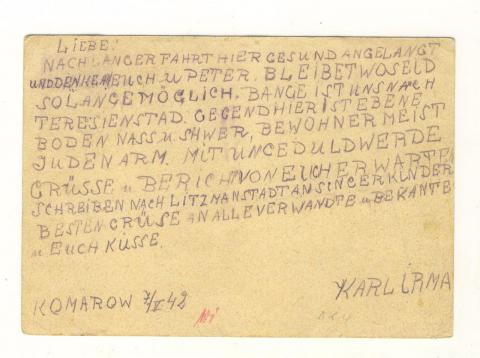 LIEBE!
NACH LANGER FAHRT HIER GESUND ANGELANGT
UND DENKEN EUCH. U PETER. BLEIBET WO SEID
SOLANGE MÖGLICH. BANGE IST UNS NACH
TERESIENSTAD. GEGEND HIER IST EBENE
BODEN NASS U. SHWER, BEWOHNER MEIST
JUDEN ARM. MIT UNGEDULD WERDE
GRÜSSE u BERICH VON EUCH ERWARTEN
SCHREIBEN NACH LITZMANSTADT AN SINGER KINDER
BESTEN GRÜSE AN ALLE VERWANDTE u BEKANTE
u EUCH KÜSSE.
KARL IRMA
KOMAROW 42